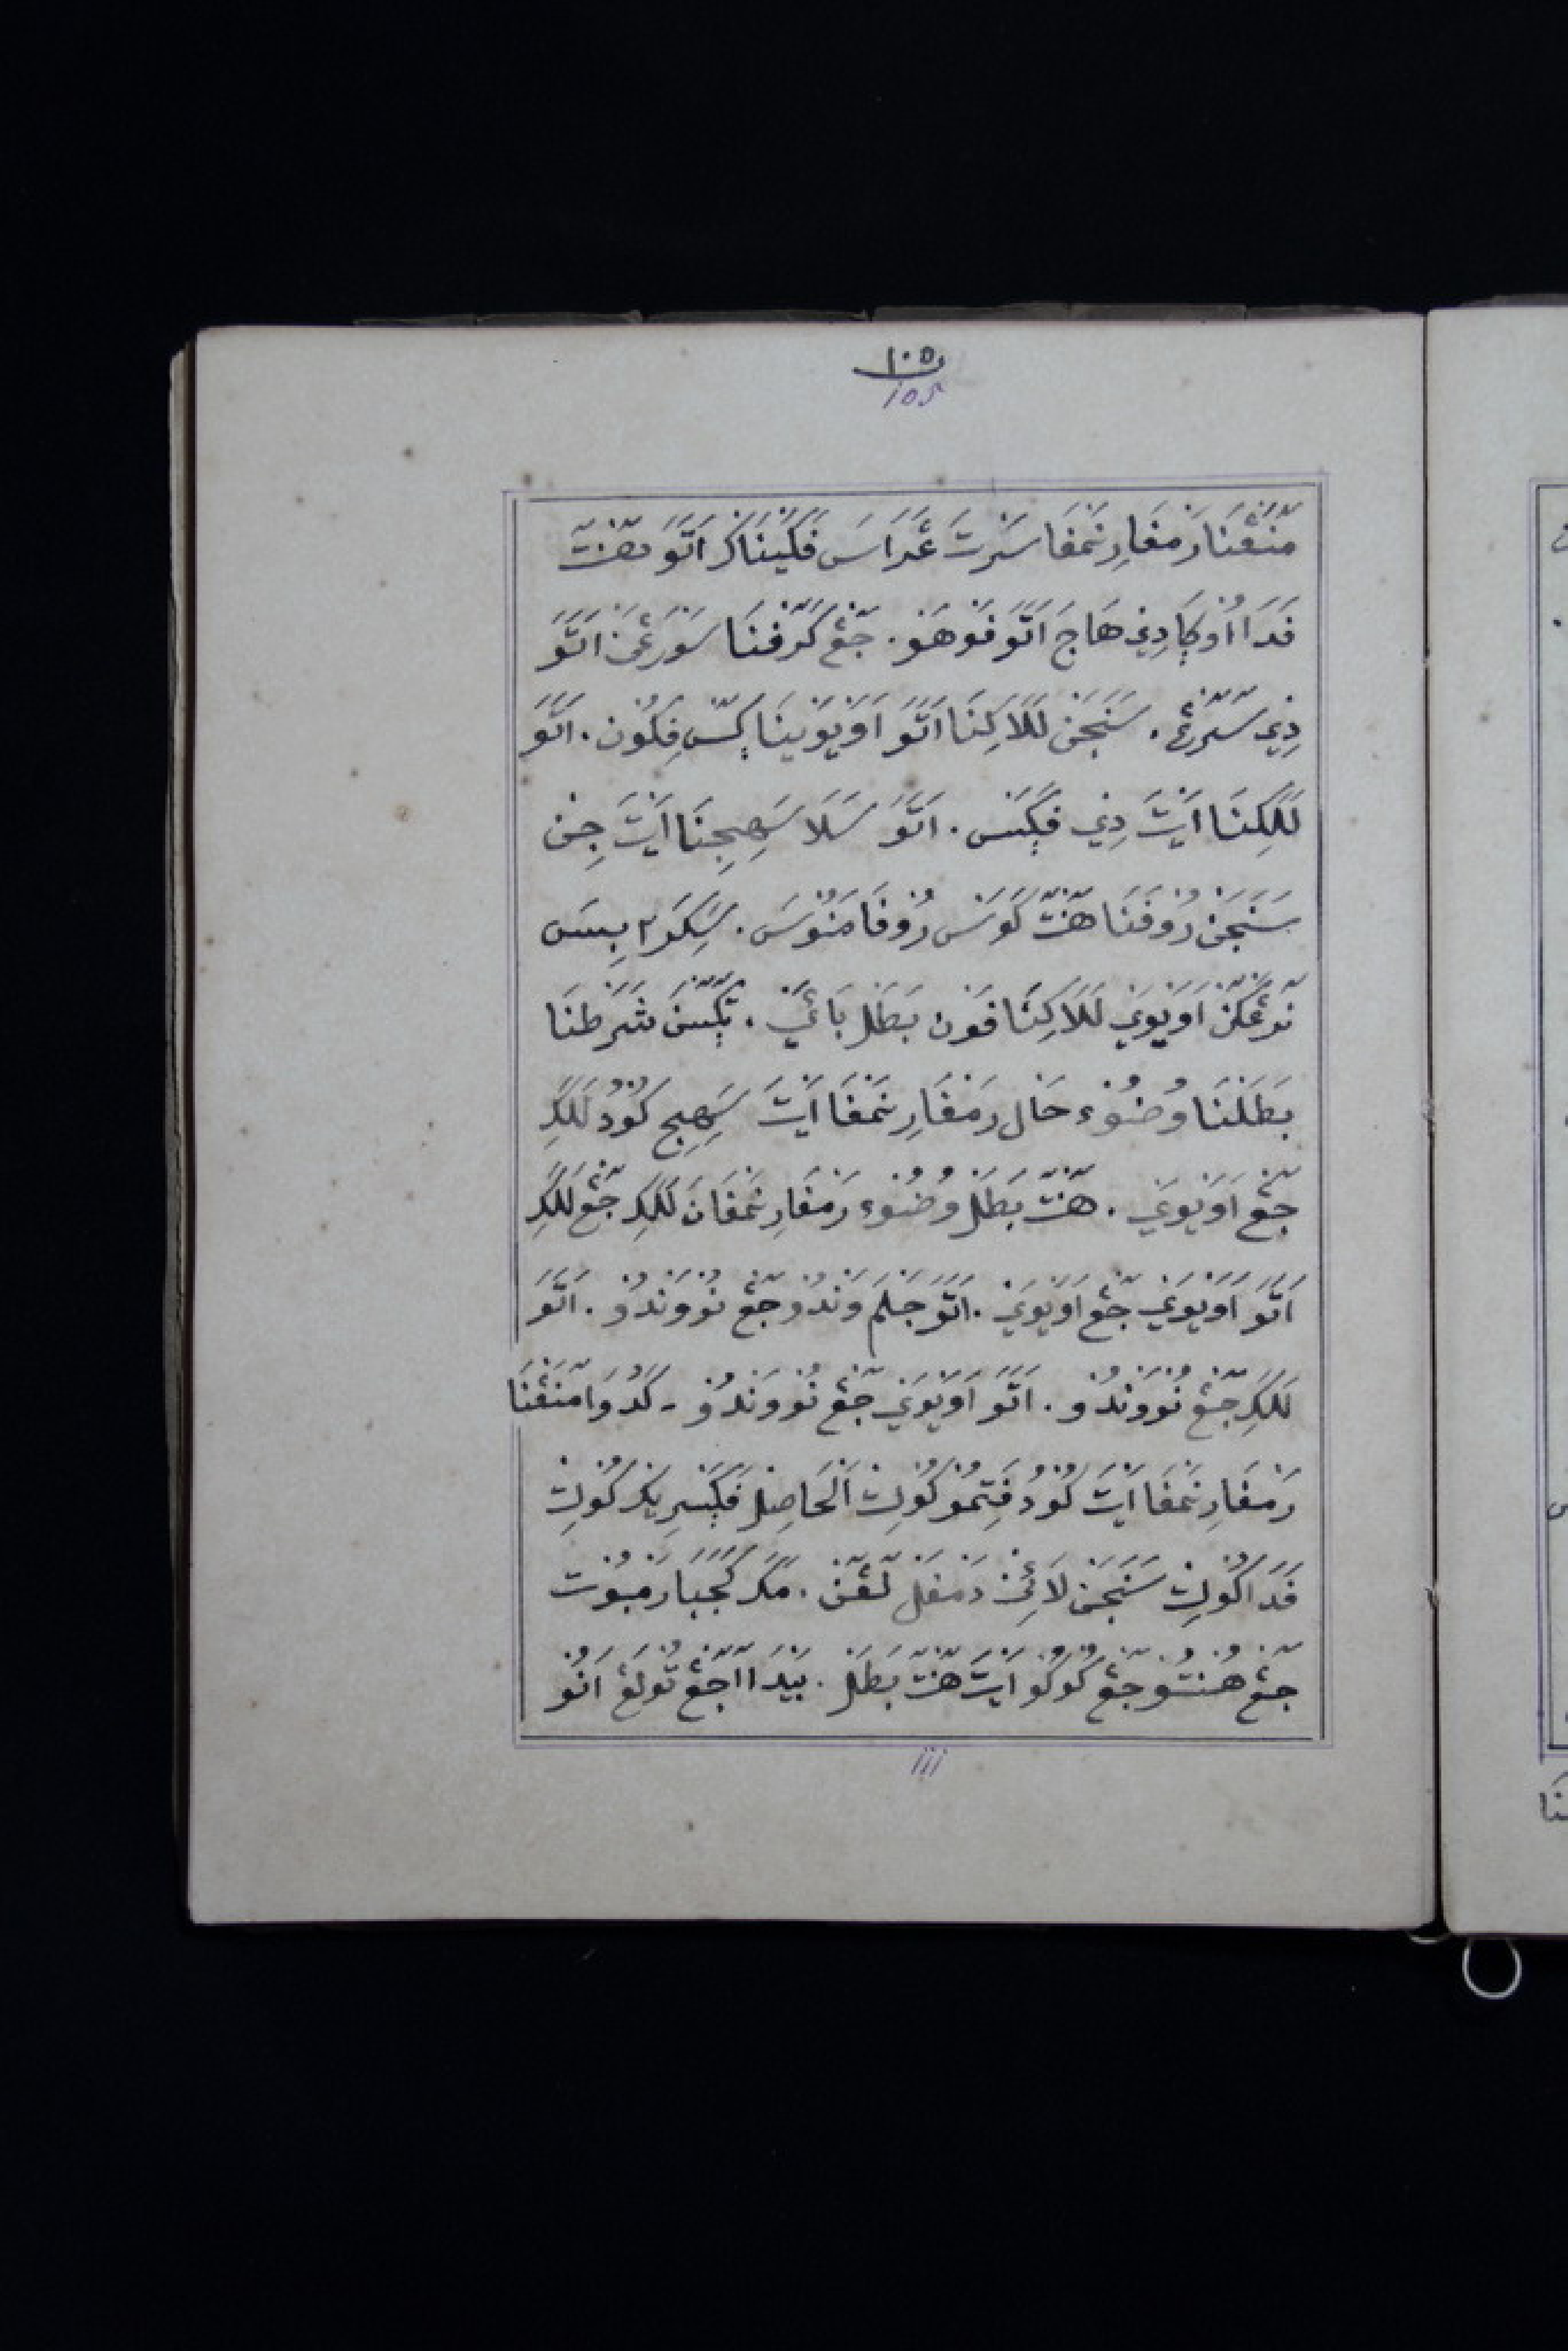 ١٠٥
105
مَنَڠْنَا رَمْفَارِ نَمْفَا سَرْتَ عَرَاسَ فَكَيْنَاكَرْ اَتَّوَ هَنْتَ
فَدَا اُوكَادِيْ هَاجَ اَتَّوَ فَوْهَنْ. جَڠْ كَرَفْنَا سَوْرَڠَنْ اَتَّوَ
دِيْ سَرَّڠْ. سَنَجَنْ لَلَاكِنَا اَتَّوَ اَوَيْوَيْنَا كِسّ فِكُوْن. اَتَّوَ
لَلَكِنَا اَيْتَ دِيْ فَكَسَ. اَتَّوَ سَلَا سَهِيجِنَا اَيْتَ جِنْ
سَنَجَنْ رُوْفَنَا هَنْتَ كَوَسْ رُوْفَا مَنُوْسَ. سَكَرَ٢ بِسَ
نَوَڠْكَنْ اَوَيْوَيْ لَلَاكِنَا فَوْن بَطَلْ بَائَيْ. تَكْسَنَ شَرَطْنَا
بَطَلْنَا وُضُوْء حَال رَمْفَارِ نَمْفَا اَيْتَ سَهِيج كُوْدُ لَلَكِ
جَڠْ اَوَيْوَيْ. هَنْتَ بَطَلْ وُضُوْء رَمْفَارِ نَمْفَانَ لَلَكِ جَڠْ لَلَكِ
اَتَّوَ اَوَيْوَيْ جَڠْ اَوَيْوَيْ. اَتَّوَ جَلْمَ وَنْدُوْ جَڠْ نُوْوَنْدُوْ. اَتَّوَ
لَلَكِ جَڠْ نُوْوَنْدُوْ. اَتَّوَ اَوَيْوَيْ جَڠْ نُوْوَنْدُوْ - كَدُوَا مَنَڠْنَا
رَمْفَارِ نَمْفَا اَيْتَ كُوْدُ فَتِمُوْ كُوْلِتْ اَلْحَاصِلْ فَكَسَرِيَكْ كُوْلِتْ
فَدَا كُوْلِتْ سَنَجَنْ لَائِنْ دَمْفَلْ لَڠَنْ. مَكَرْ كَجَبَا رَمْبُوْت
جَڠْ هُنْتُوْ جَڠْ كُوْكُوْ اَيْتَ هَنْتَ بَطَلْ. بَيْدَا اَجَڠْ تُوْلَڠْ اَنُوْ
iii